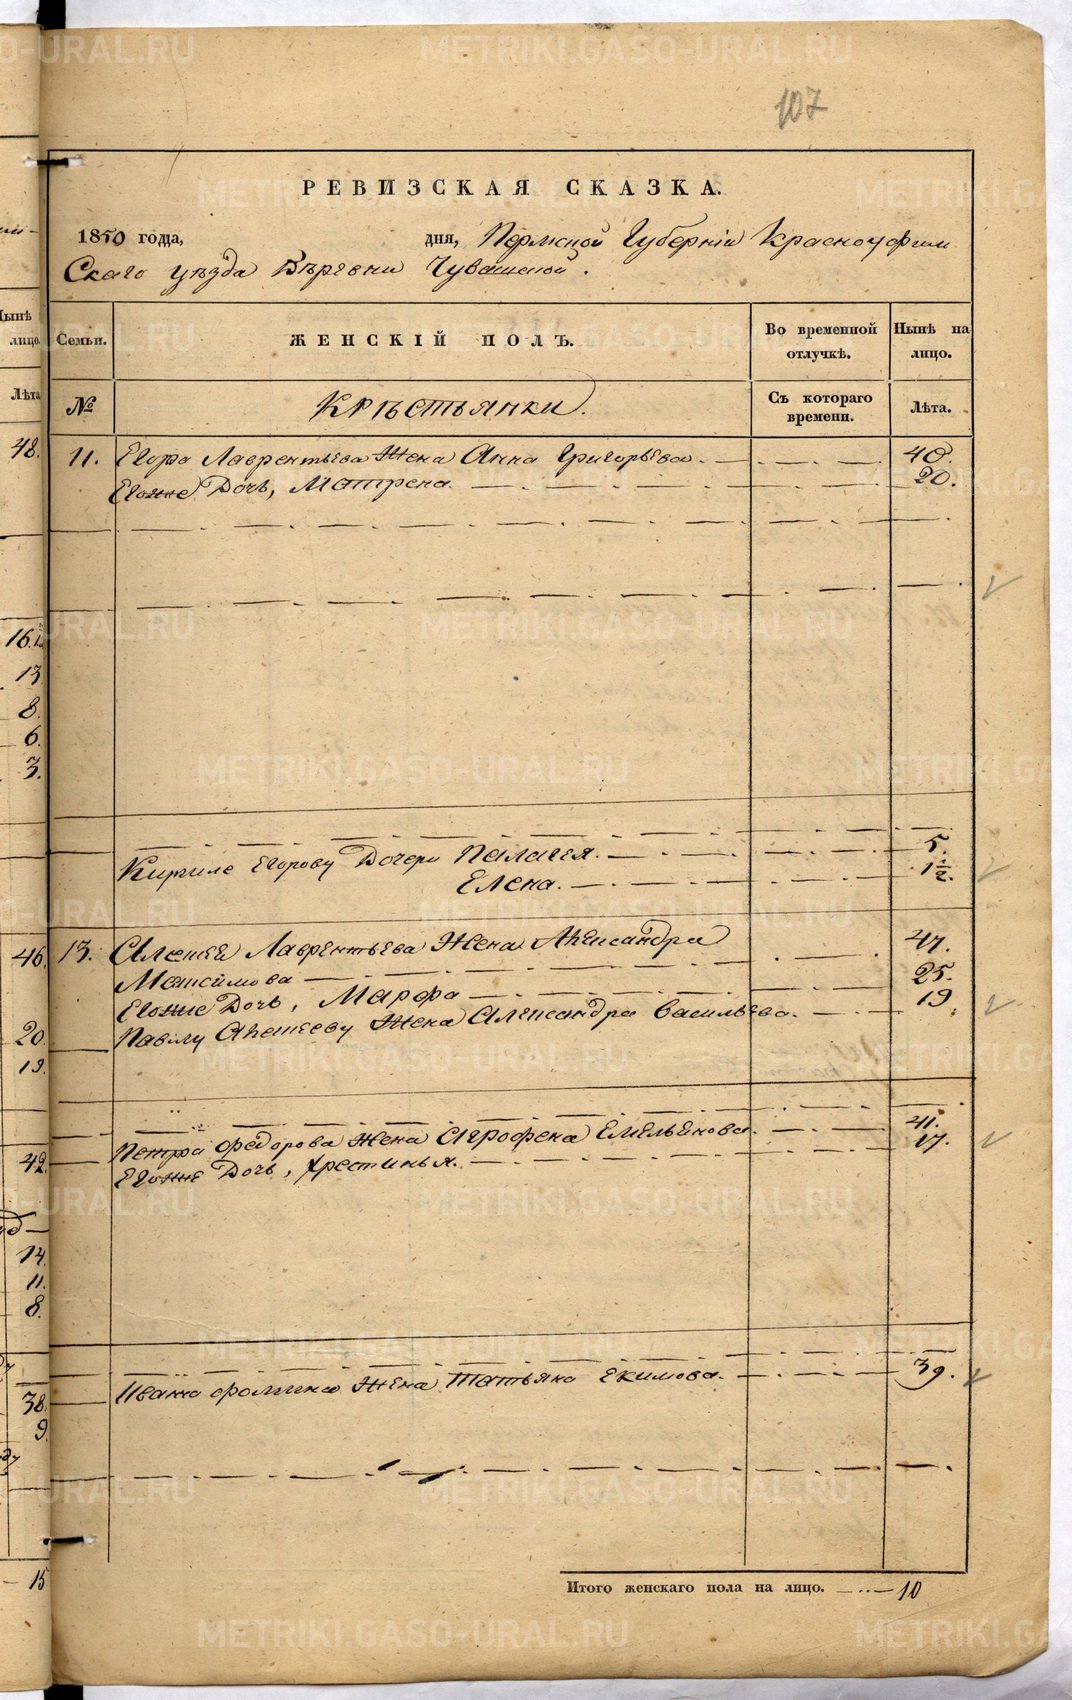 107
РЕВИЗСКАЯ СКАЗКА.
1850 года, дня, Пермской Губерніи Красноуфим
Скаго уѣзда Деревни Чувашской.
Семьи. ЖЕНСКІЙ ПОЛЪ. Во временной отлучкѣ. Нынѣ на лицо.
№ Крѣстьянки. Съ котораго времени. Лѣта.
11. Егора Лаврентьева Жена Анна Григорьева 40.
Егоже Дочь, Матрена 20.
Кириле Егорову Дочери Палагея. 5.
Елена. 1½.
13. Алексея Лаврентьева Жена Александра 47.
Максимова
Егоже Дочь, Марфа 25.
Павлу Алексееву Жена Александра Васильева. 19
Петра Федорова Жена Агрофена Емельянова. 41.
Егоже Дочь, Хрестинья. 17.
Ивана Фомина Жена Татьяна Екимова. 39.
Итого женскаго пола на лицо. 10
Нынѣ
лицо.
Лѣта
48.
16.½
13
8.
6.
3.
46.
20.
19.
42.
14.
11.
8.
38.
9.
15
METRIKI.GASO-URAL.RU